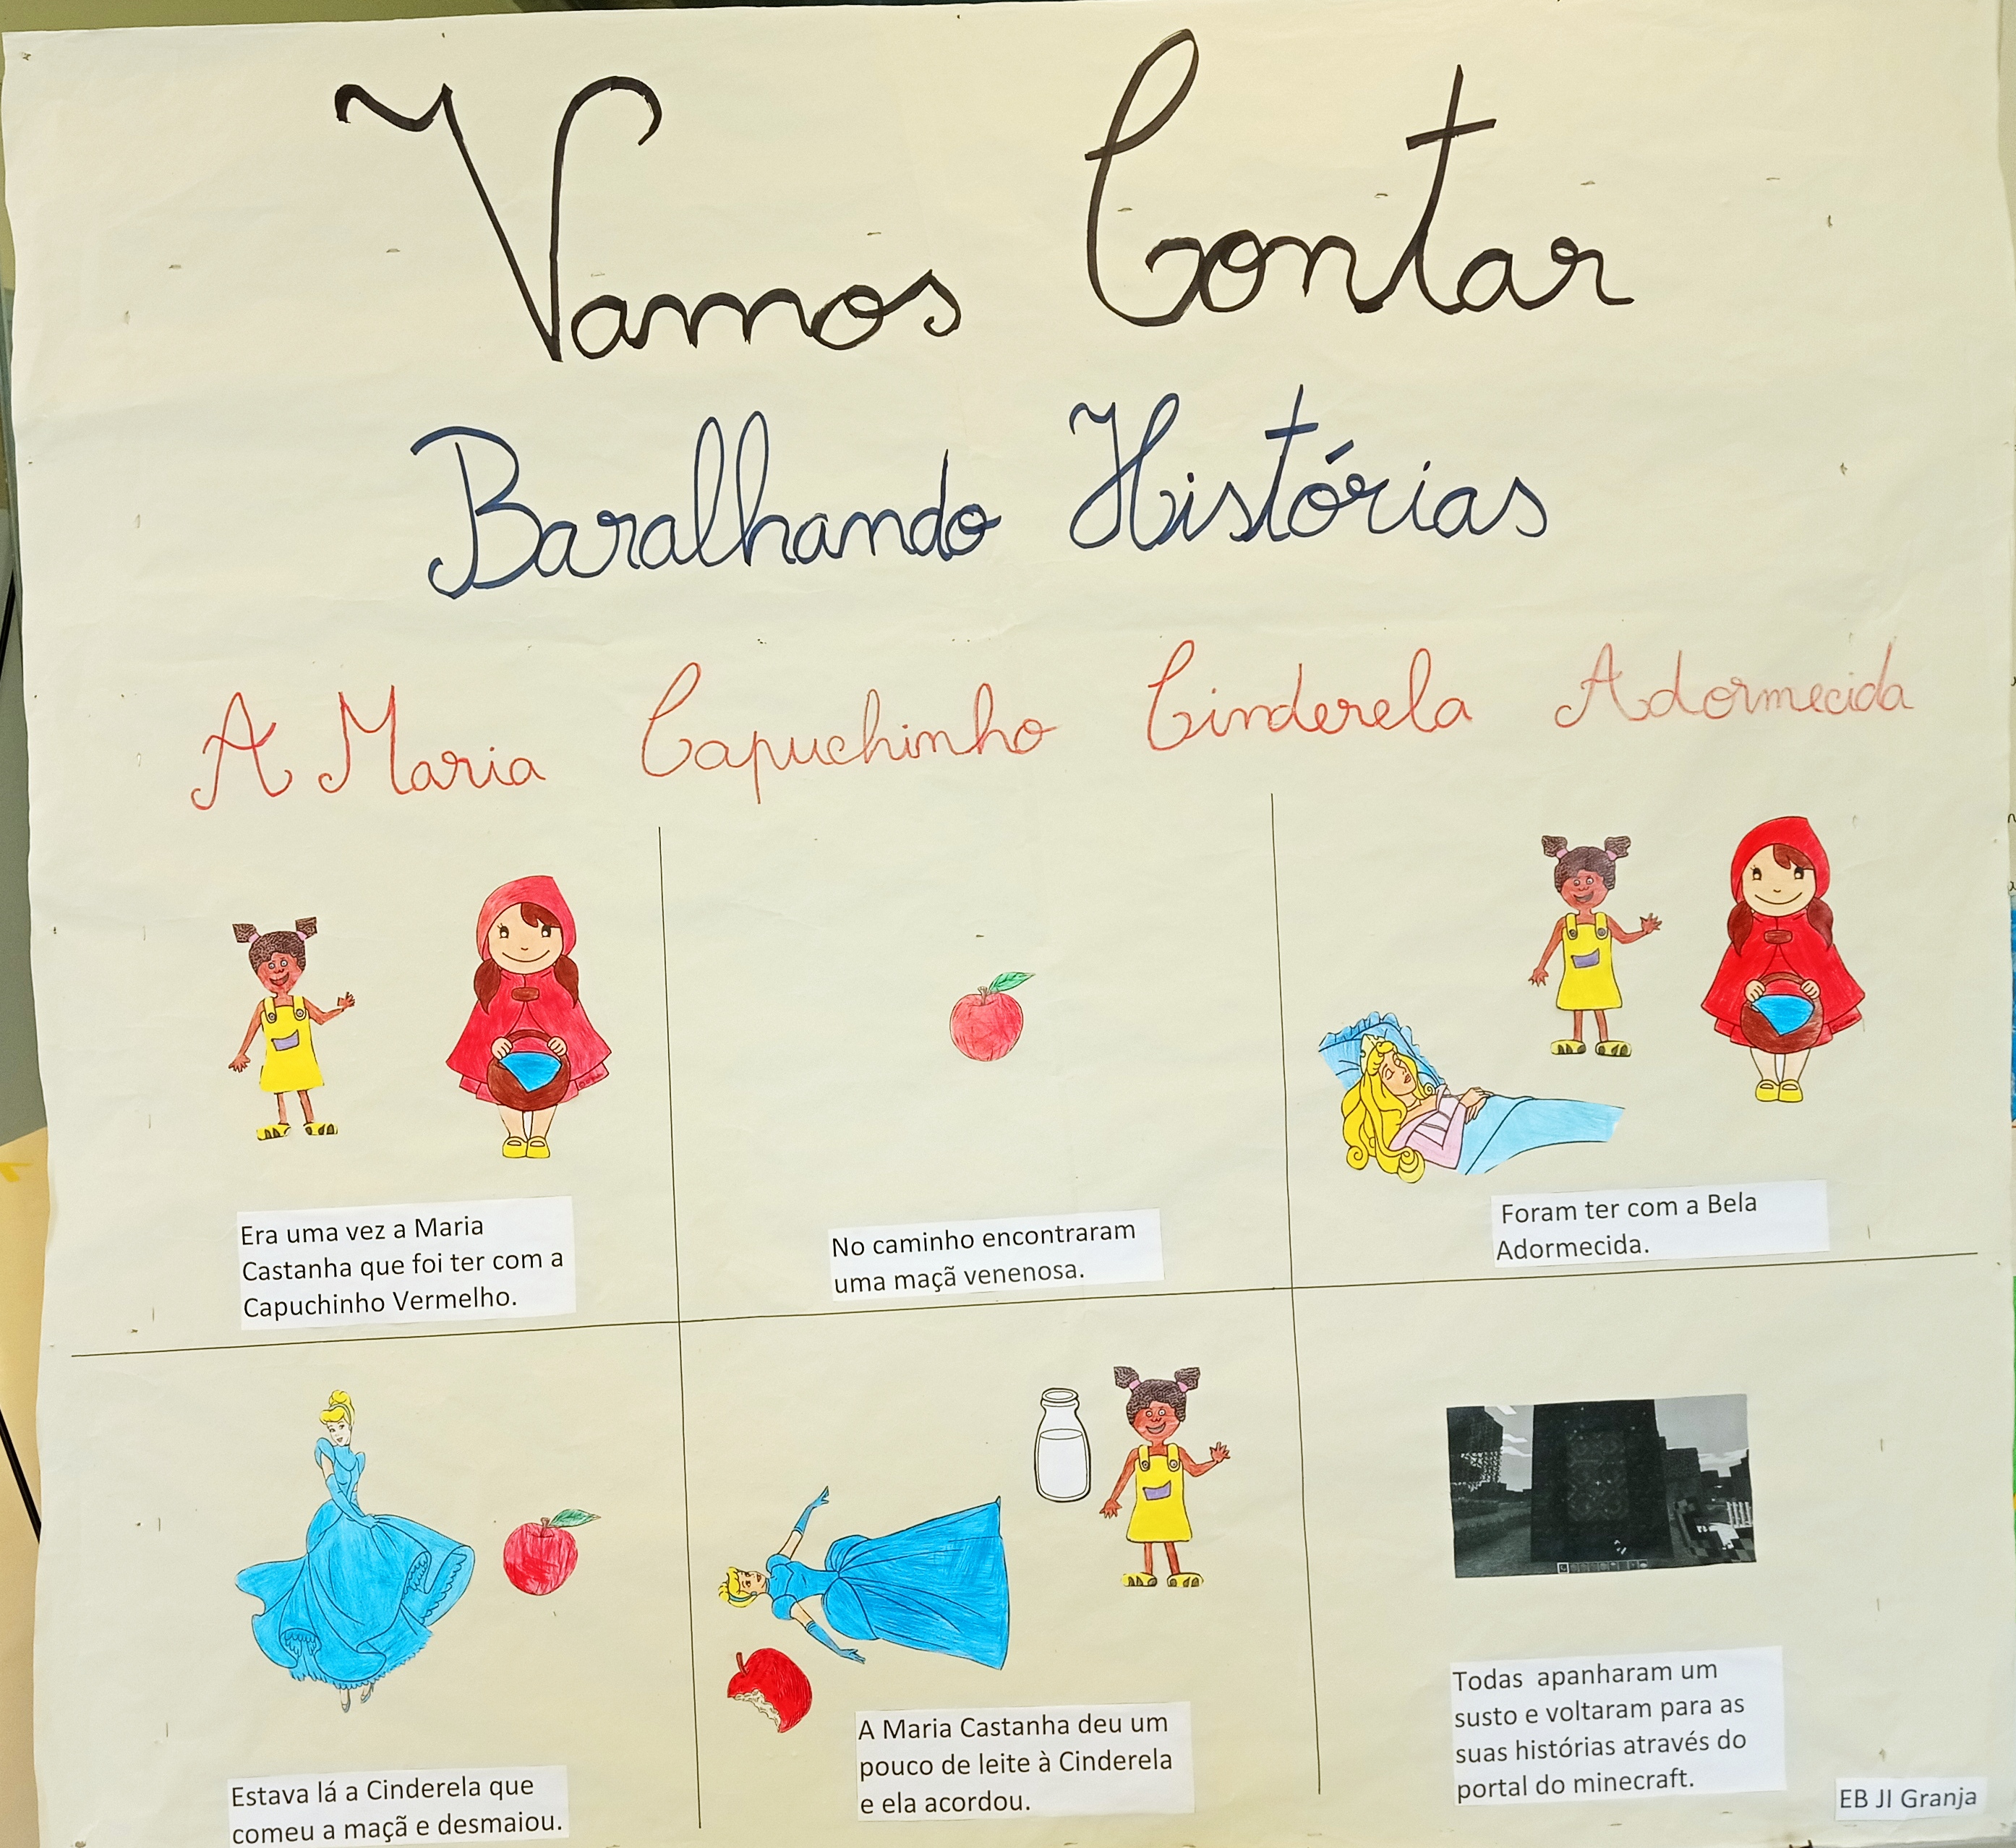 Vamos Contar
Baralhando Histórias
A Maria Capuchinho Cinderela Adormecida
Era uma vez a Maria
Castanha que foi ter com a
Capuchinho Vermelho.
No caminho encontraram
uma maçã venenosa.
Foram ter com a Bela
Adormecida.
Estava lá a Cinderela que
comeu a maçã e desmaiou.
A Maria Castanha deu um
pouco de leite à Cinderela
e ela acordou.
Todas apanharam um
susto e voltaram para as
suas histórias através do
portal do minecraft.
EB JI Granja